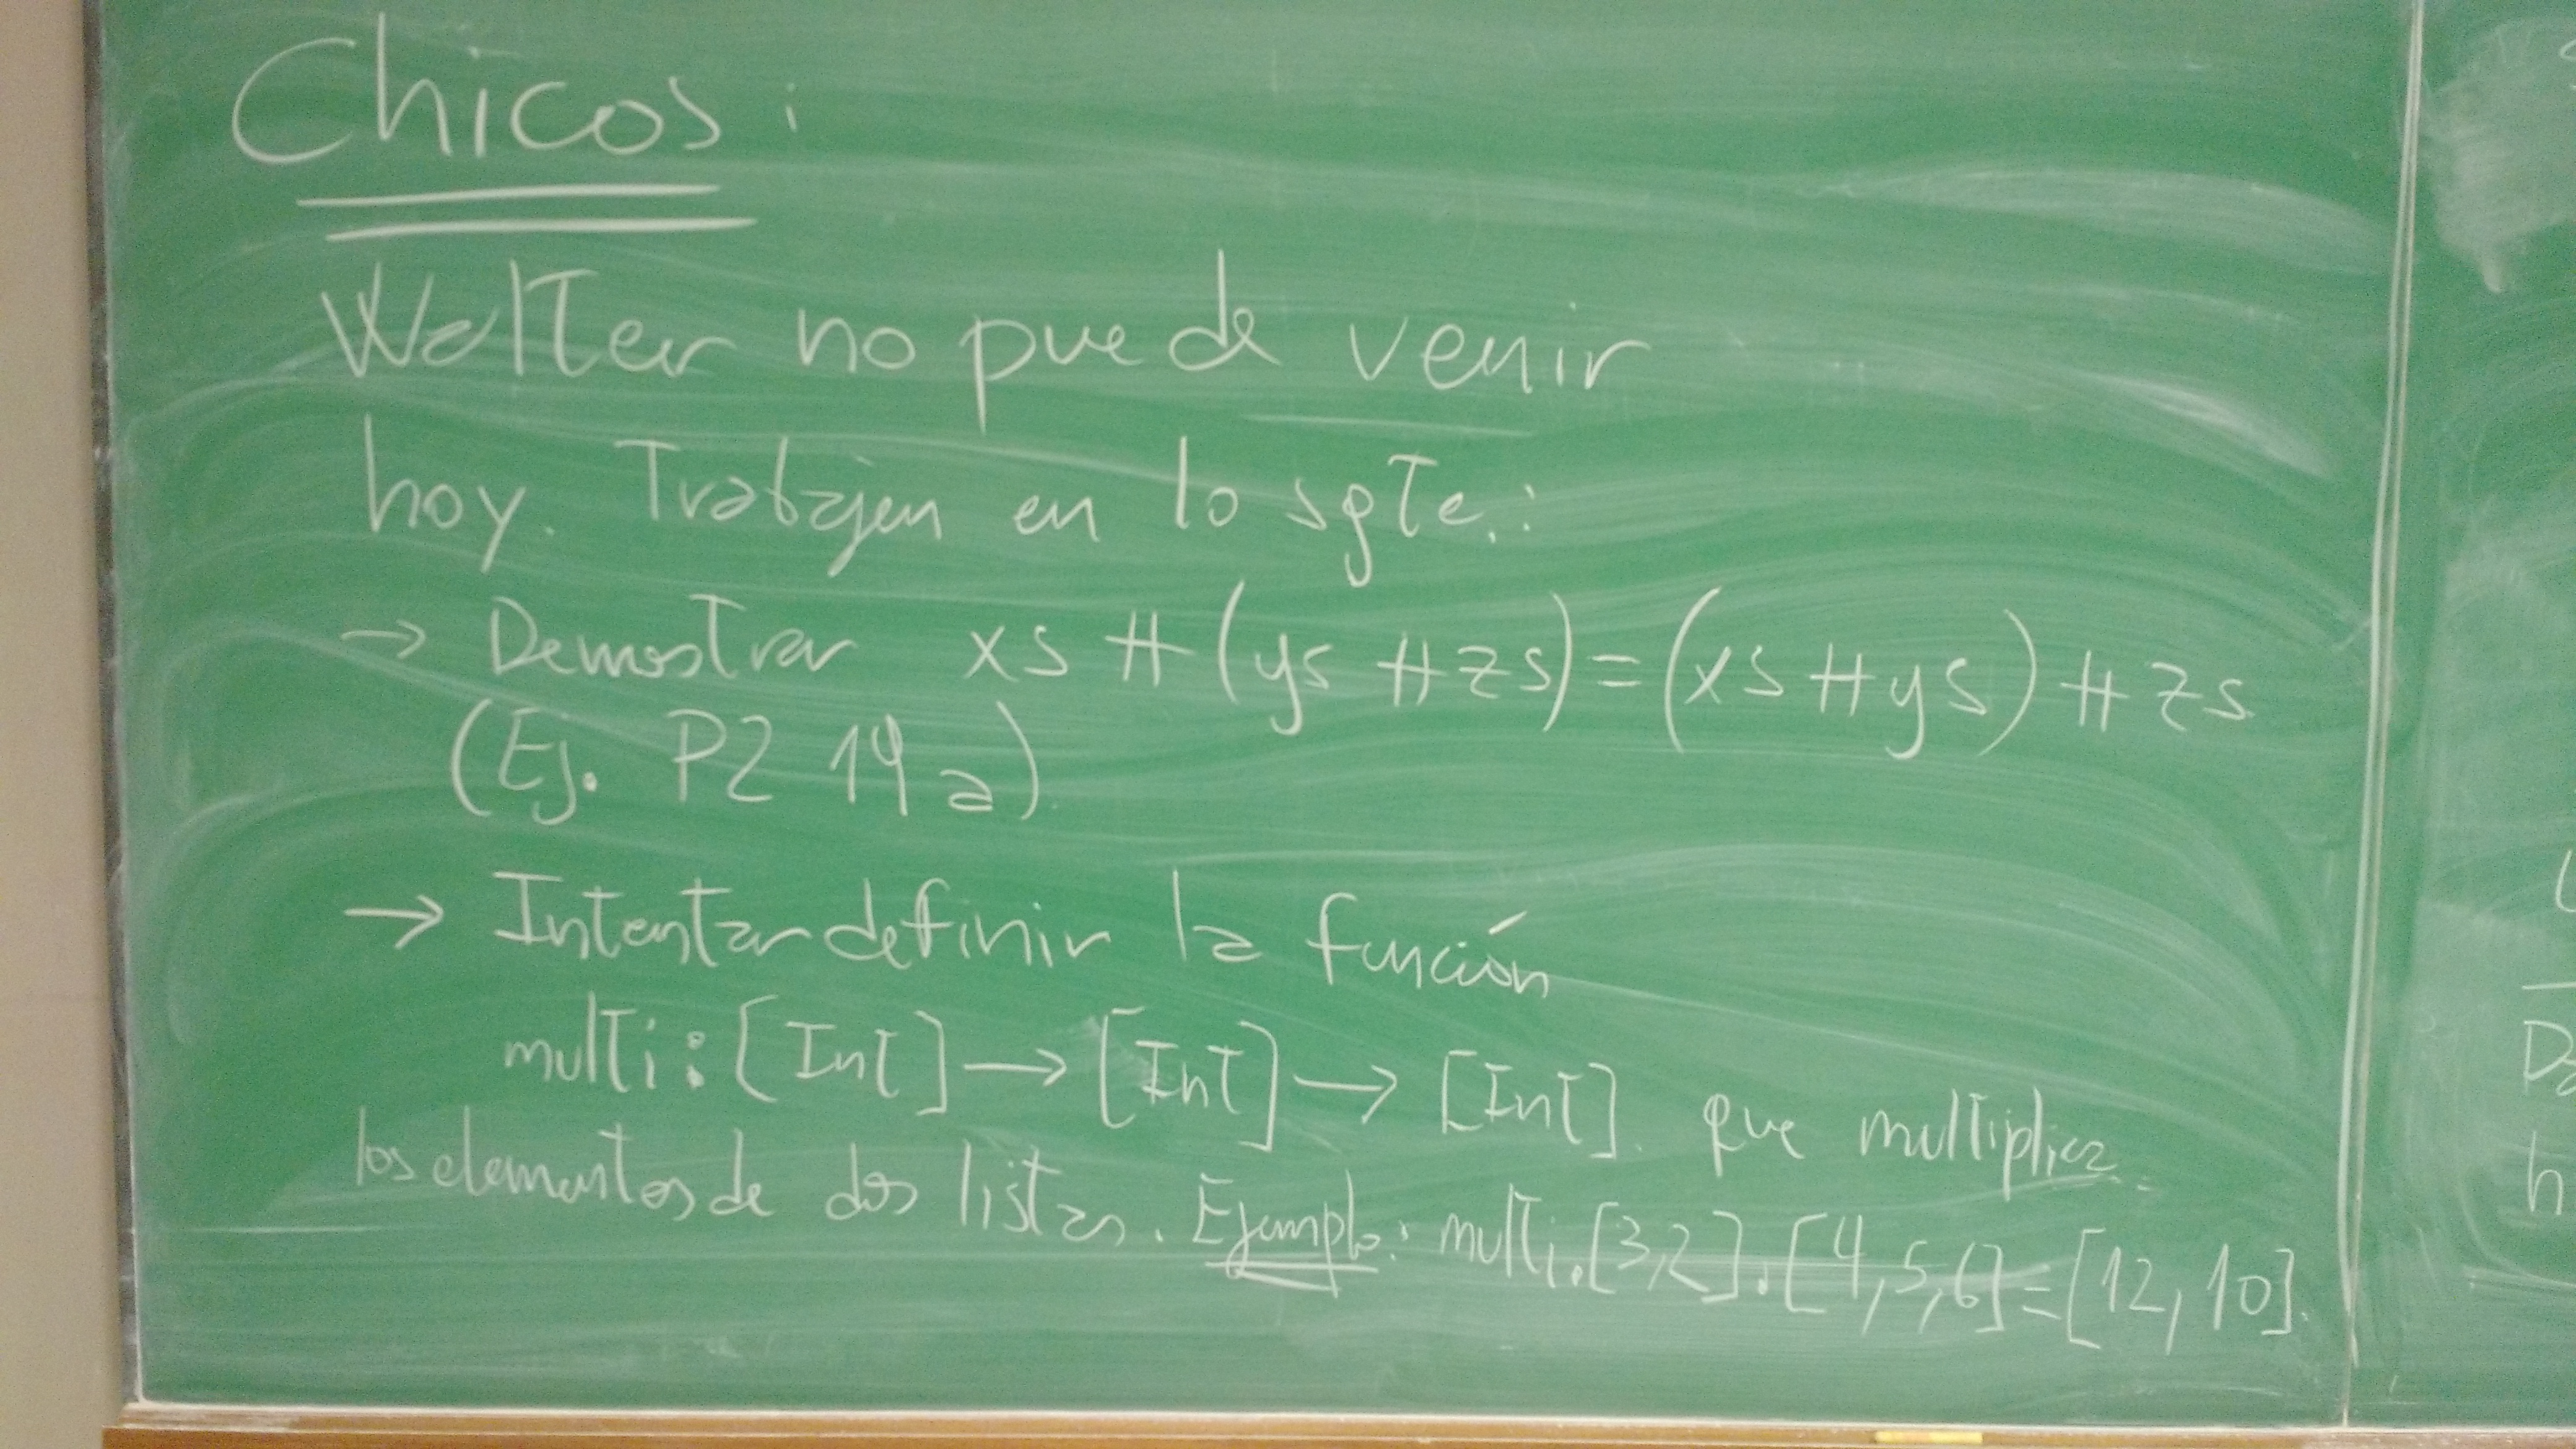 Chicos:
Walter no puede venir
hoy. Trabajen en lo sgte.:
→ Demostrar xs ++ (ys ++ zs) = (xs ++ ys) ++ zs
(Ej. P2 14 a).
→ Intentar definir la función
multi : [Int] → [Int] → [Int]. que multiplica
los elementos de dos listas. Ejemplo: multi.[3,2].[4,5,6]=[12,10].